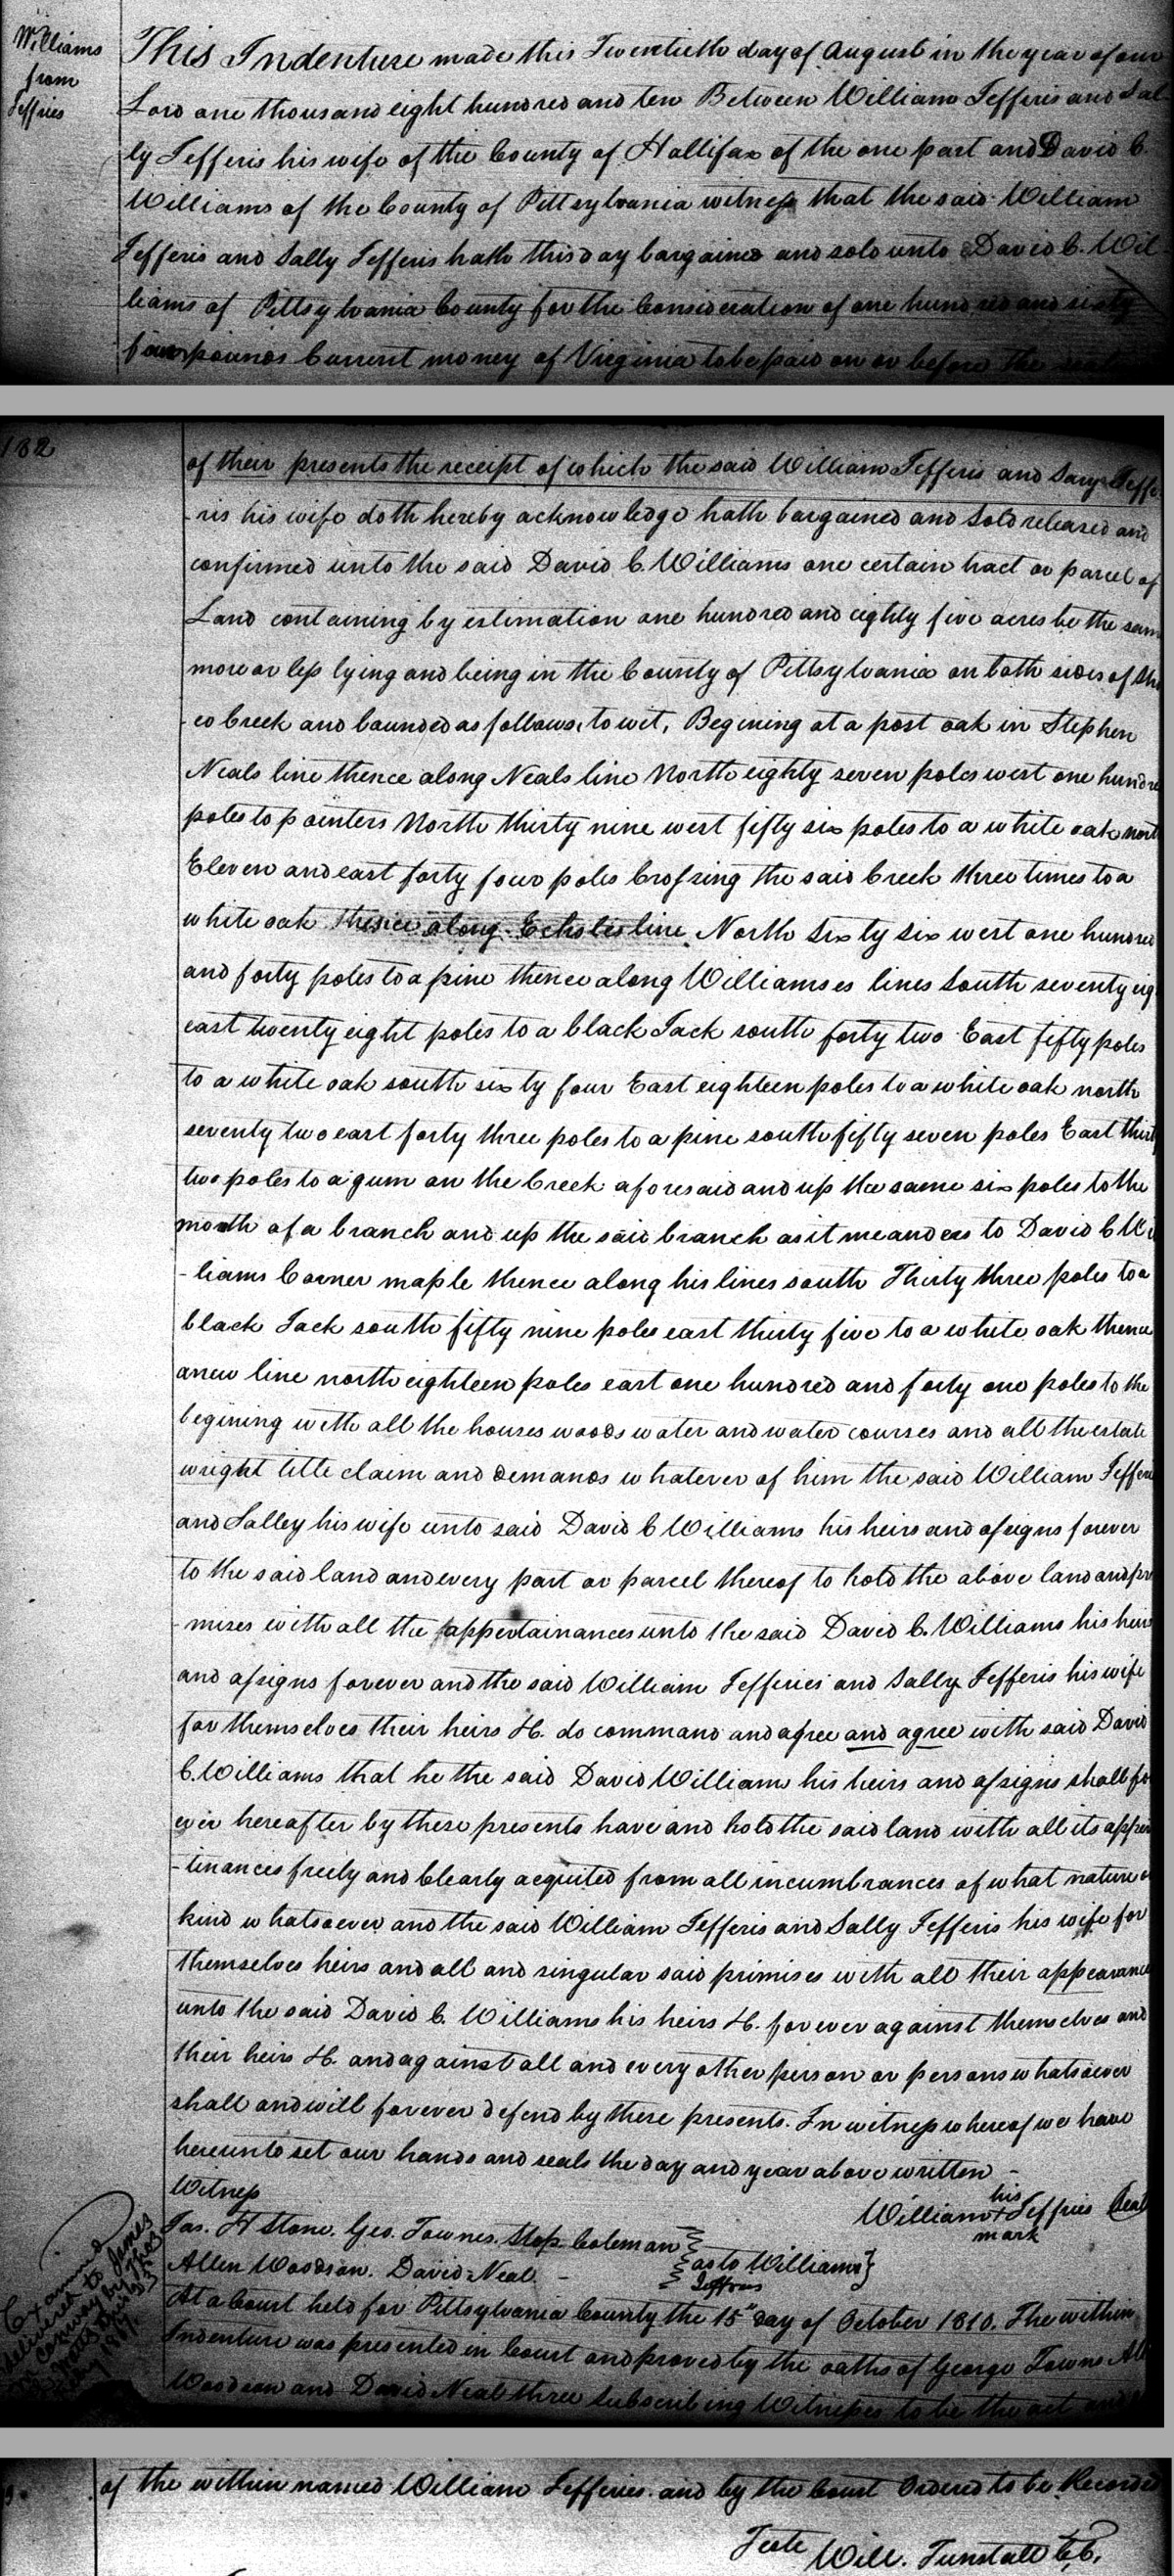 Williams
from
Jeffries
This Indenture made this Twentieth day of August in the year of our
Lord one thousand eight hundred and ten Between William Jefferis and Sal
ly Jefferis his wife of the County of Hallifax of the one part and David C.
Williams of the County of Pittsylvania witness that the said William
Jefferis and Sally Jefferis hath this day bargained and sold unto David C. Wil
liams of Pittsylvania County for the Consideration of one hundred and sixty
four pounds Current money of Virginia to be paid on or before the
182
of their presents the receipt of which the said William Jefferis and Sary Jeffe
-ris his wife doth hereby acknowledge hath bargained and sold released and
confirmed unto the said David C. Williams one certain tract or parcel of
Land containing by estimation one hundred and eighty five acres be the same
more or less lying and being in the County of Pittsylvania on both sides of
-co Creek and bounded as follows, to wit, Begining at a post oak in Stephen
Neals line thence along Neals line North eighty seven poles west one hundred
poles to pointers North thirty nine west fifty six poles to a white oak north
Eleven and east forty four poles Crossing the said Creek three times to a
white oak thence along Echoles line North sixty six west one hundred
and forty poles to a pine thence along Williamses lines South seventy eig
east twenty eight poles to a black Jack south forty two East fifty poles
to a white oak south sixty four East eighteen poles to a white oak north
seventy two east forty three poles to a pine south fifty seven poles East thirty
two poles to a gum on the Creek aforesaid and up the same six poles to the
mouth of a branch and up the said branch as it meanders to David C Wil
-liams Corner maple thence along his lines south Thirty three poles to a
black Jack south fifty nine poles east thirty five to a white oak thence
a new line north eighteen poles east one hundred and forty one poles to the
begining with all the houses woods water and water courses and all the estate
wright title claim and demands whatever of him the said William Jefferis
and Salley his wife unto said David C Williams his heirs and assigns forever
to the said land and every part or parcel thereof to hold the above land and pr
-mises with all the appertainances unto the said David C. Williams his heirs
and assigns forever and the said William Jefferies and Sally Jefferis his wife
for themselves their heirs &c. do command and agree and agree with said David
C. Williams that he the said David Williams his heirs and assigns shall for
ever hereafter by these presents have and hold the said land with all its apper
-tinances freely and Clearly acquited from all incumbrances of what nature or
kind whatsoever and the said William Jefferis and Sally Jefferis his wife for
themselves heirs and all and singular said primises with all their appearance
unto the said David C. Williams his heirs &c. forever against themselves and
their heirs &c. and against all and every other person or persons whatsoever
shall and will forever defend by these presents. In witness whereof we have
hereunto set our hands and seals the day and year above written -
Witness
his
William + Jeffries (Seal
mark
Jas. H Stone. Geo. Townes. Step. Coleman
Allen Woodson. David Neal - as to Williams
Jeffries
Examined
delivered to James
Conway by
At a Court held for Pittsylvania County the 15" day of October 1810. The within
Indenture was presented in Court and proved by the oaths of George Towns All
Woodson and David Neal three Subscribing Witnesses to be the act and
of the within named William Jefferies. and by the Court Ordered to be Recorded
Teste Will. Tunstall CC.